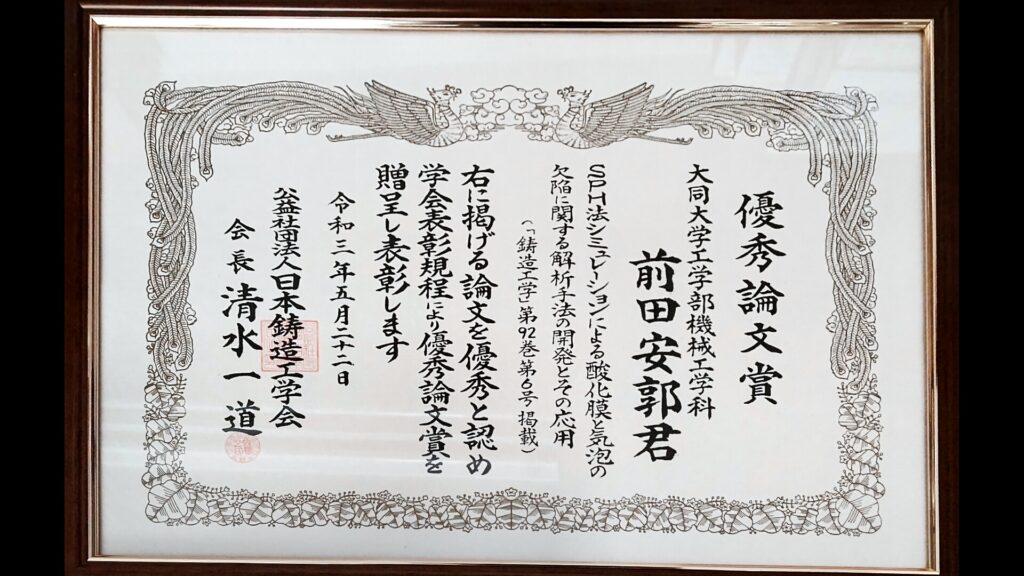 優秀論文賞
大同大学工学部機械工学科
前田安郭君
SPH法シミュレーションによる酸化膜と気泡の
欠陥に関する解析手法の開発とその応用
(「鋳造工学」第92巻第6号 掲載)
右に掲げる論文を優秀と認め
学会表彰規程により優秀論文賞を
贈呈し表彰します
令和三年五月二十二日
公益社団法人日本鋳造工学会
会長 清水一道